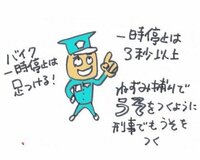 バイク
一時停止は
足つける！
一時停止は
3秒以上
ねずみ捕りで
うそをつくように
刑事でもうそを
つく